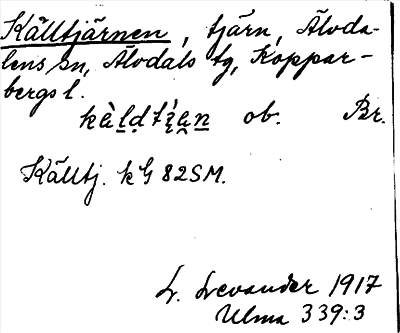 Källtjärnen, tjärn, Älvda-
lens sn, Älvdals tg, Koppar-
bergs l.
ob. Br.
Källtj. k 82SM.
L. Levander 1917
Ulma 339:3